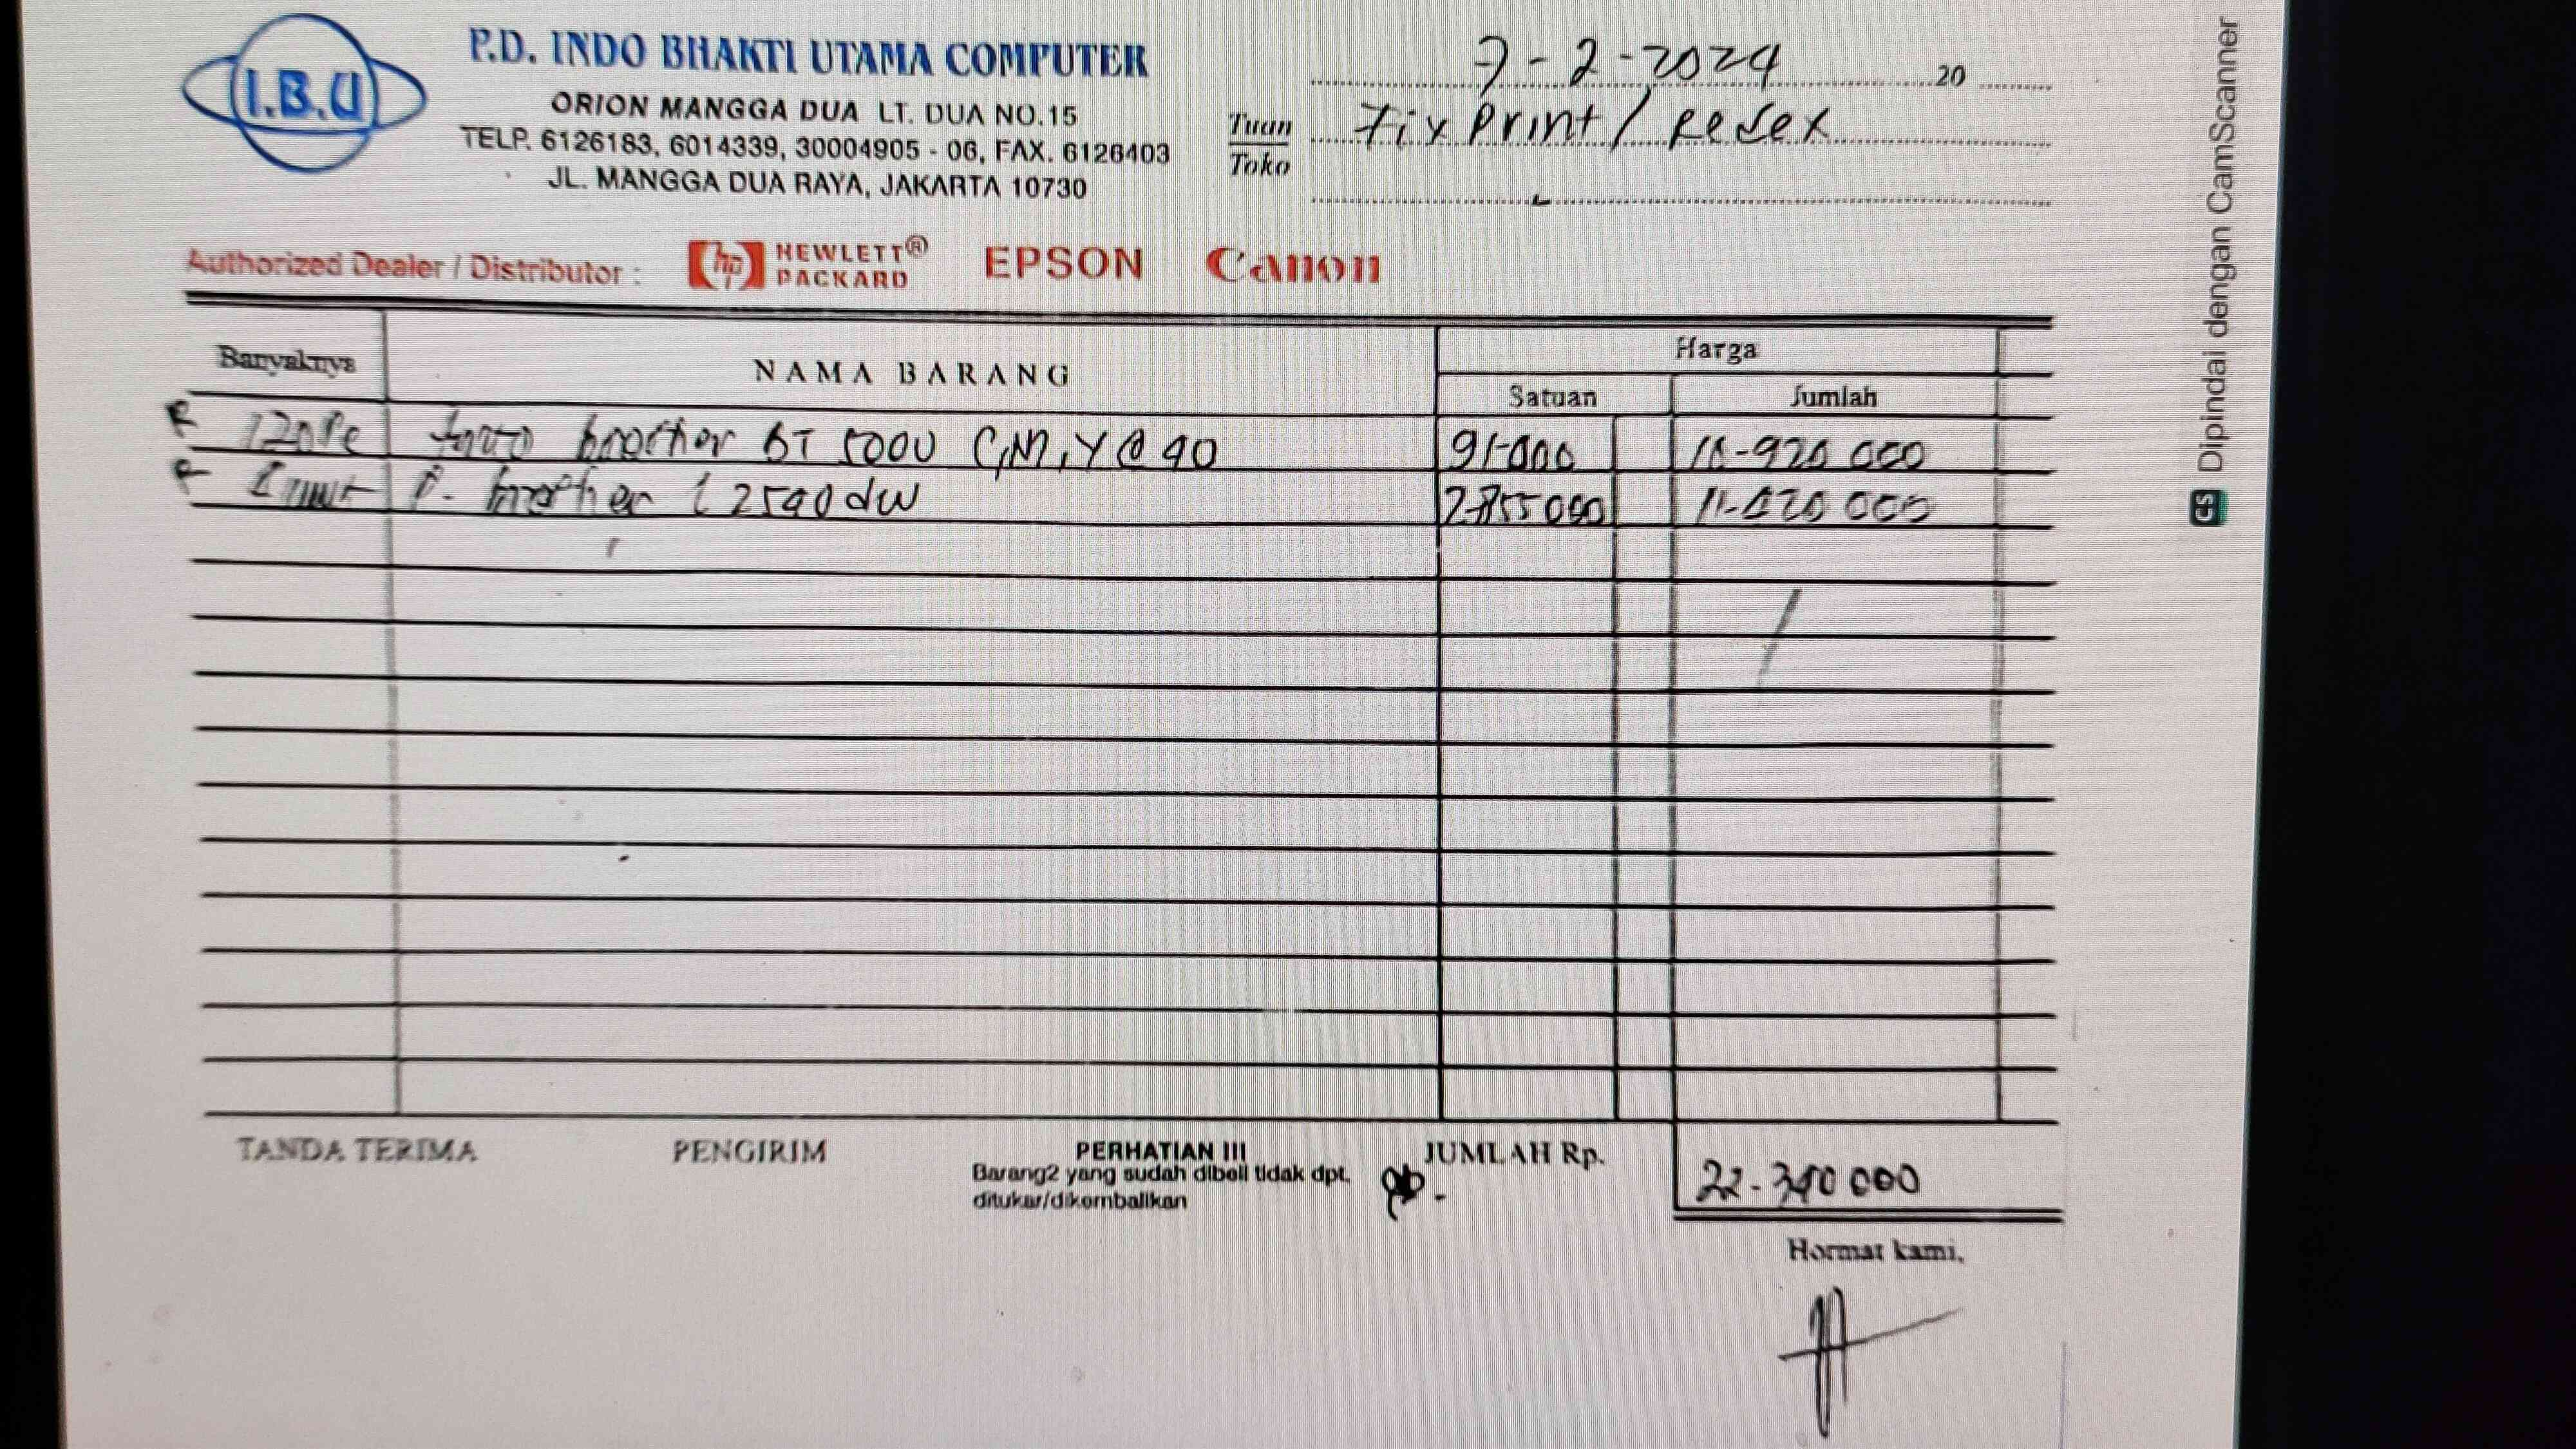 I.B.U
P.D. INDO BHAKTI UTAMA COMPUTER
ORION MANGGA DUA LT. DUA NO.15
TELP. 6126183, 6014339, 30004905 - 06, FAX. 6126403
JL. MANGGA DUA RAYA, JAKARTA 10730
7-2-2024 20
Tuan Fix Print /
Toko
Authorized Dealer / Distributor : hp HEWLETT® PACKARD EPSON Canon
Banyaknya NAMA BARANG Harga
Satuan Jumlah
brother BT 5000 C,M,Y @ 40 91-000 10-920 000
brother 2540dw 2855000 11-420 000
TANDA TERIMA PENGIRIM PERHATIAN III JUMLAH Rp. 22-340 000
Barang2 yang sudah dibeli tidak dpt.
ditukar/dikembalikan
Hormat kami,
CS Dipindai dengan CamScanner